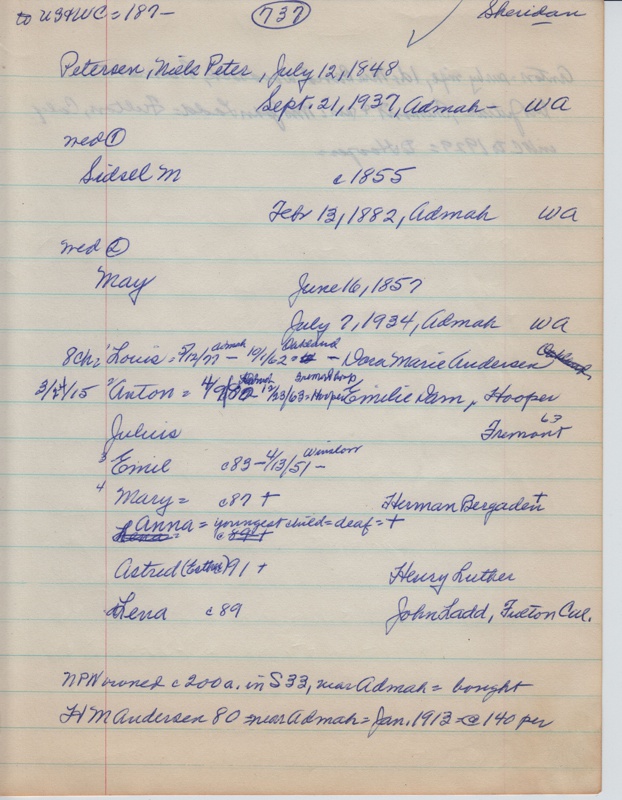 to US+WC = 187- 737 Sheridan
Petersen, Niels Peter, July 12, 1848
Sept. 21, 1937, Admah - WA
med ①
Sidsel M c 1855
Febr 13, 1882, Admah WA
med ②
May June 16, 1857
July 7, 1934, Admah WA
8Ch: 1 Louis = 5/12/77 Admah - 10/1/62 = Oakland - Dora Marie Andersen Oakland
3/24/15 2 Anton = 4/9/80 Admah - 12/23/63 = Hooper Fremont hosp Emilie Dam, Hooper
Julius Fremont 63
3 Emil c 83 - 4/13/51 - Winslow
4 Mary = c 87 + Herman Bergadent +
Anna = youngest child = deaf = +
Lena = c 89 +
Astrud (Esther) 91 + Henry Luther
Lena c 89 John Ladd, Fulton Cal.
NPN owned c 200 a. in S 33, near Admah = bought
H M Andersen 80 = near Admah = Jan. 1913 = @ 140 per